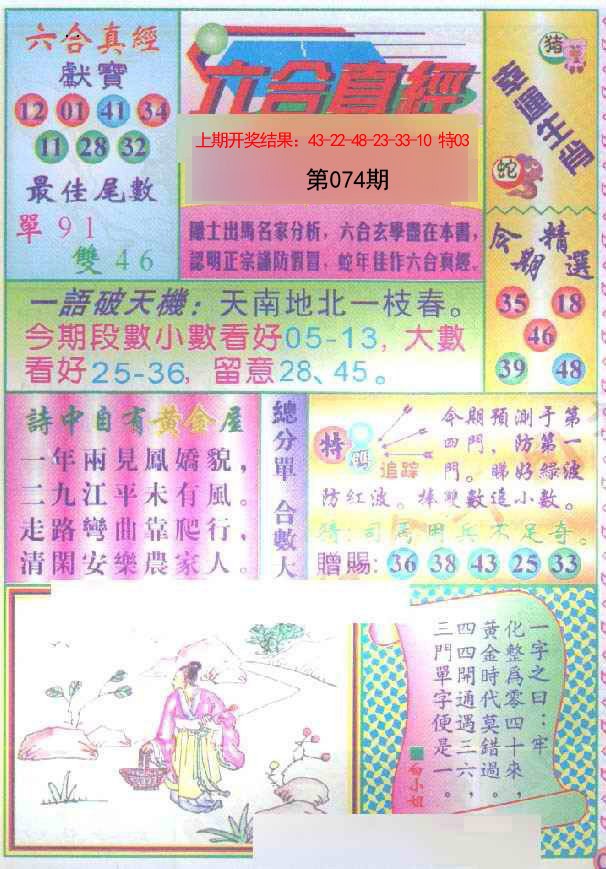 六合真經
獻寶
12 01 41 34
11 28 32
最佳尾數
單 91
雙 46
六合真經
上期开奖结果：43-22-48-23-33-10 特03
第074期
隱士出馬名家分析，六合玄學盡在本書，
認明正宗謹防假冒，蛇年佳作六合真經。
猪
幸運生肖
蛇
今期精選
35 18
46
39 48
一語破天機：天南地北一枝春。
今期段數小數看好05-13，大數
看好25-36，留意28、45。
詩中自有黃金屋
一年兩見鳳嬌貌，
二九江平未有風。
走路彎曲靠爬行，
清閑安樂農家人。
總分單 合數大
特碼
追踪
今期預測于第
四門，防第一
門。睇好綠波
防紅波。捧雙數追小數。
猜：司馬用兵不足奇。
贈賜：36 38 43 25 33
一字之曰：牢，
化整爲零四十來，
黃金時代莫錯過，
四四開通遇三六，
三門單字便是一。
■白小姐